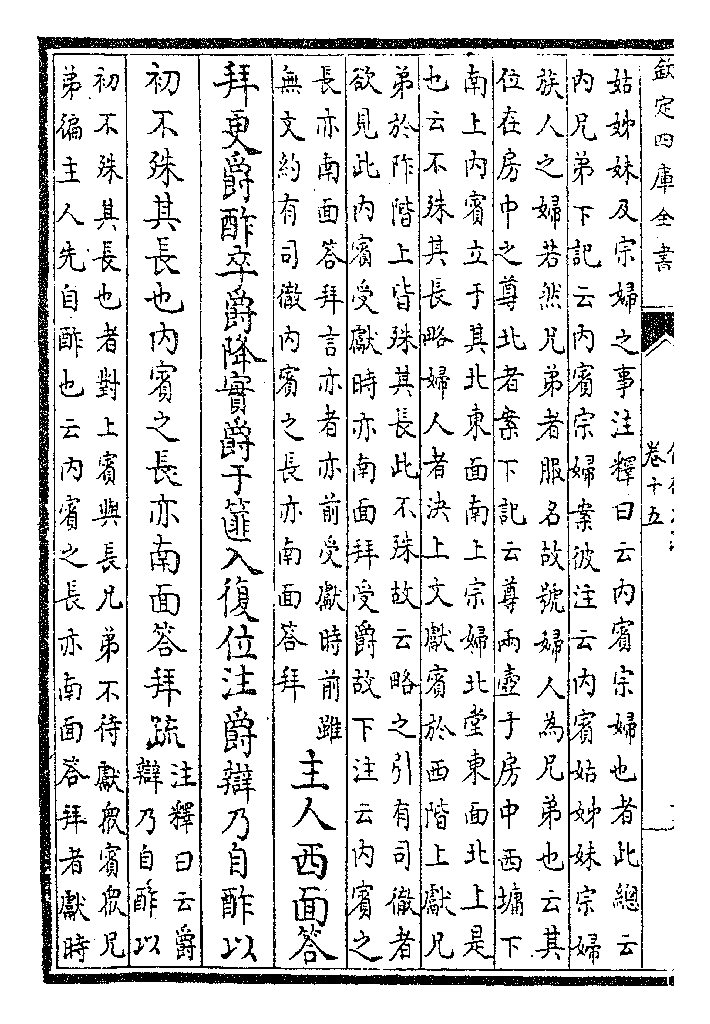 欽定四庫全書
卷十五
姑姊妹及宗婦之事注釋曰云内賓宗婦也者此總云
内兄弟下記云内賓宗婦案彼注云内賓姑姊妹宗婦
族人之婦若然兄弟者服名故號婦人為兄弟也云其
位在房中之尊北者案下記云尊兩壺于房中西墉下
南上内賓立于其北東面南上宗婦北堂東面北上是
也云不殊其長略婦人者決上文獻賓於西階上獻兄
弟於阼階上皆殊其長此不殊故云略之引有司徹者
欲見此内賓受獻時亦南面拜受爵故下注云内賓之
長亦南面答拜言亦者亦前受獻時前雖
無文約有司徹内賓之長亦南面答拜
主人西面答
拜更爵酢卒爵降實爵于篚入復位注爵辯乃自酢以
初不殊其長也内賓之長亦南面答拜疏
注釋曰云爵
辯乃自酢以
初不殊其長也者對上賓與長兄弟不待獻衆賓衆兄
弟徧主人先自酢也云内賓之長亦南面答拜者獻時